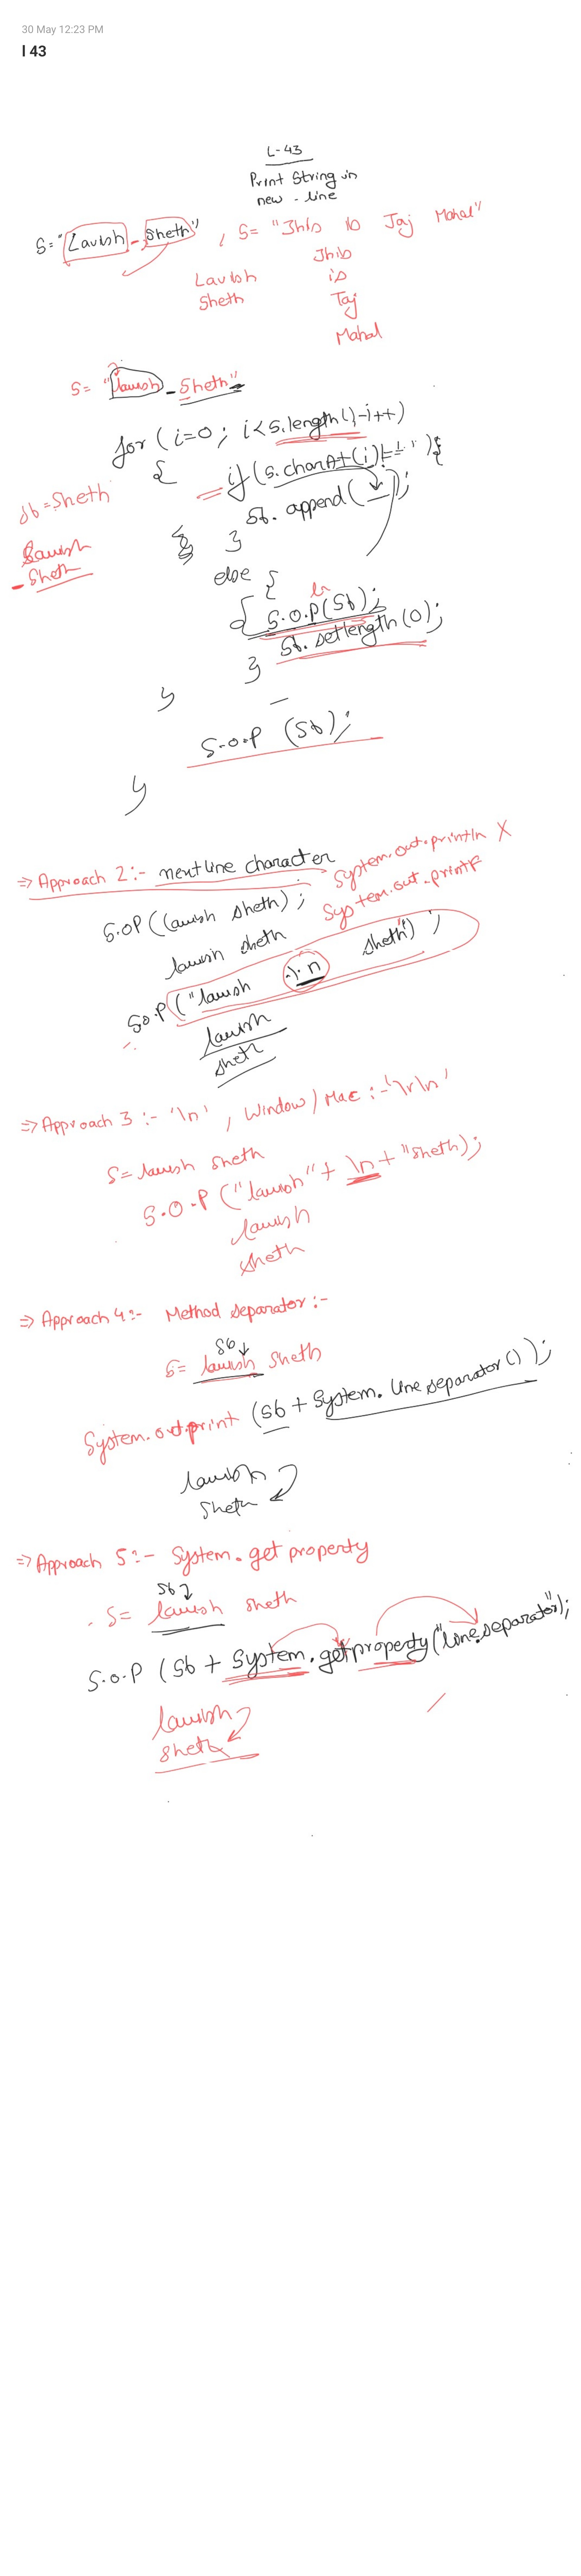 30 May 12:23 PM
l 43
L-43
Print String in
new - line
S="Lavish - Sheth" , S= "This is Taj Mahal"
Lavish
Sheth
This
is
Taj
Mahal
S= "Lavish - Sheth"
for (i=0; i<s.length();i++)
{
if (s.charAt(i)!=' '){
sb. append( );
}
sb=Sheth
Lavish
- Sheth
else {
S.O.P(Sb);
ln
Sb. setlength(0);
}
}
S.O.P (Sb);
}
=> Approach 2:- nextline character
System.out.println X
System.out.printf
S.OP (lavish sheth);
lavish sheth
S.o.P ("lavish %n sheth");
lavish
sheth
=> Approach 3 :- '\n' , Window/Mac :- '\r\n'
S= lavish sheth
S.O.P ("lavish" + \n + "sheth);
lavish
sheth
=> Approach 4:- Method separator:-
Sb
S= lavish sheth
System.out.print (Sb + System. line separator());
lavish
sheth
=> Approach 5:- System.get property
Sb
S= lavish sheth
S.O.P (Sb + System.getproperty("line.separator");
lavish
sheth